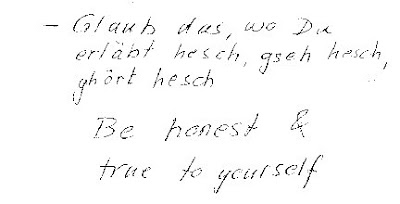 - Glaub das, wo Du
erläbt hesch, gseh hesch,
ghört hesch
Be honest &
true to yourself